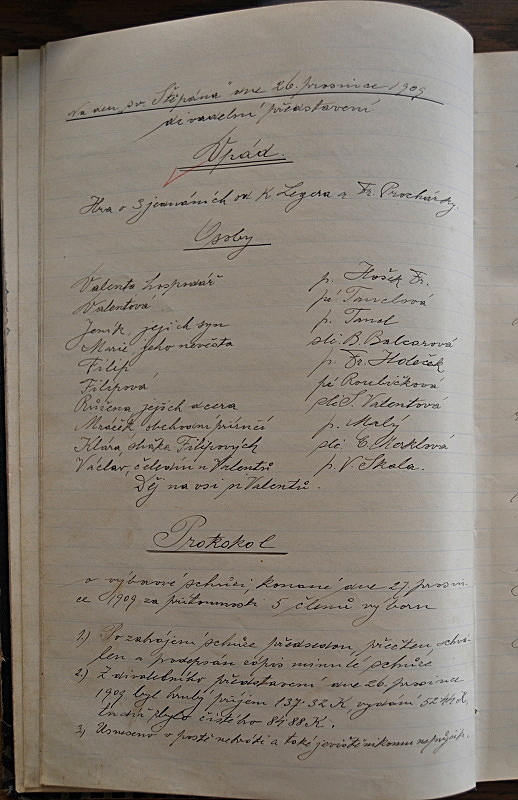 Na den „sv. Štěpána" dne 26. prosince 1909
divadelní představení
Úpád.
Hra o 3 jednáních od K. Legera a Fr. Procházky.
Osoby
Valenta hospodář p. Hošek Fr.
Valentova pí Tanclová
Jeník, jejich syn p. Tancl
Marie jeho nevěsta slč. B. Balcarová
Filip p. Fr. Holeček
Filipová pí Roubíčková
Růžena jejich dcera slč. S. Valentová
Mráček obchodní příručí p. Malý
Klára, chůva Filipových slč. E. Merklová
Václav, čeledín u Valentů p. V. Škala.
Děj na vsi u Valentů.
Protokol
o výborové schůzi, konané dne 27. prosin-
ce 1909 za přítomnosti 5 členů výboru
1.) Po zahájení schůze předsedou, přečten, schvá-
len a podepsán zápis minulé schůze
2.) Z divadelního představení dne 26. prosince
1909 byl hrubý příjem 137·32 K, vydání 52·44 K,
tudíž zbylo čistého 84·88 K.
3.) Usneseno v postě nehráti a také jeviště nikomu nepůjčit.